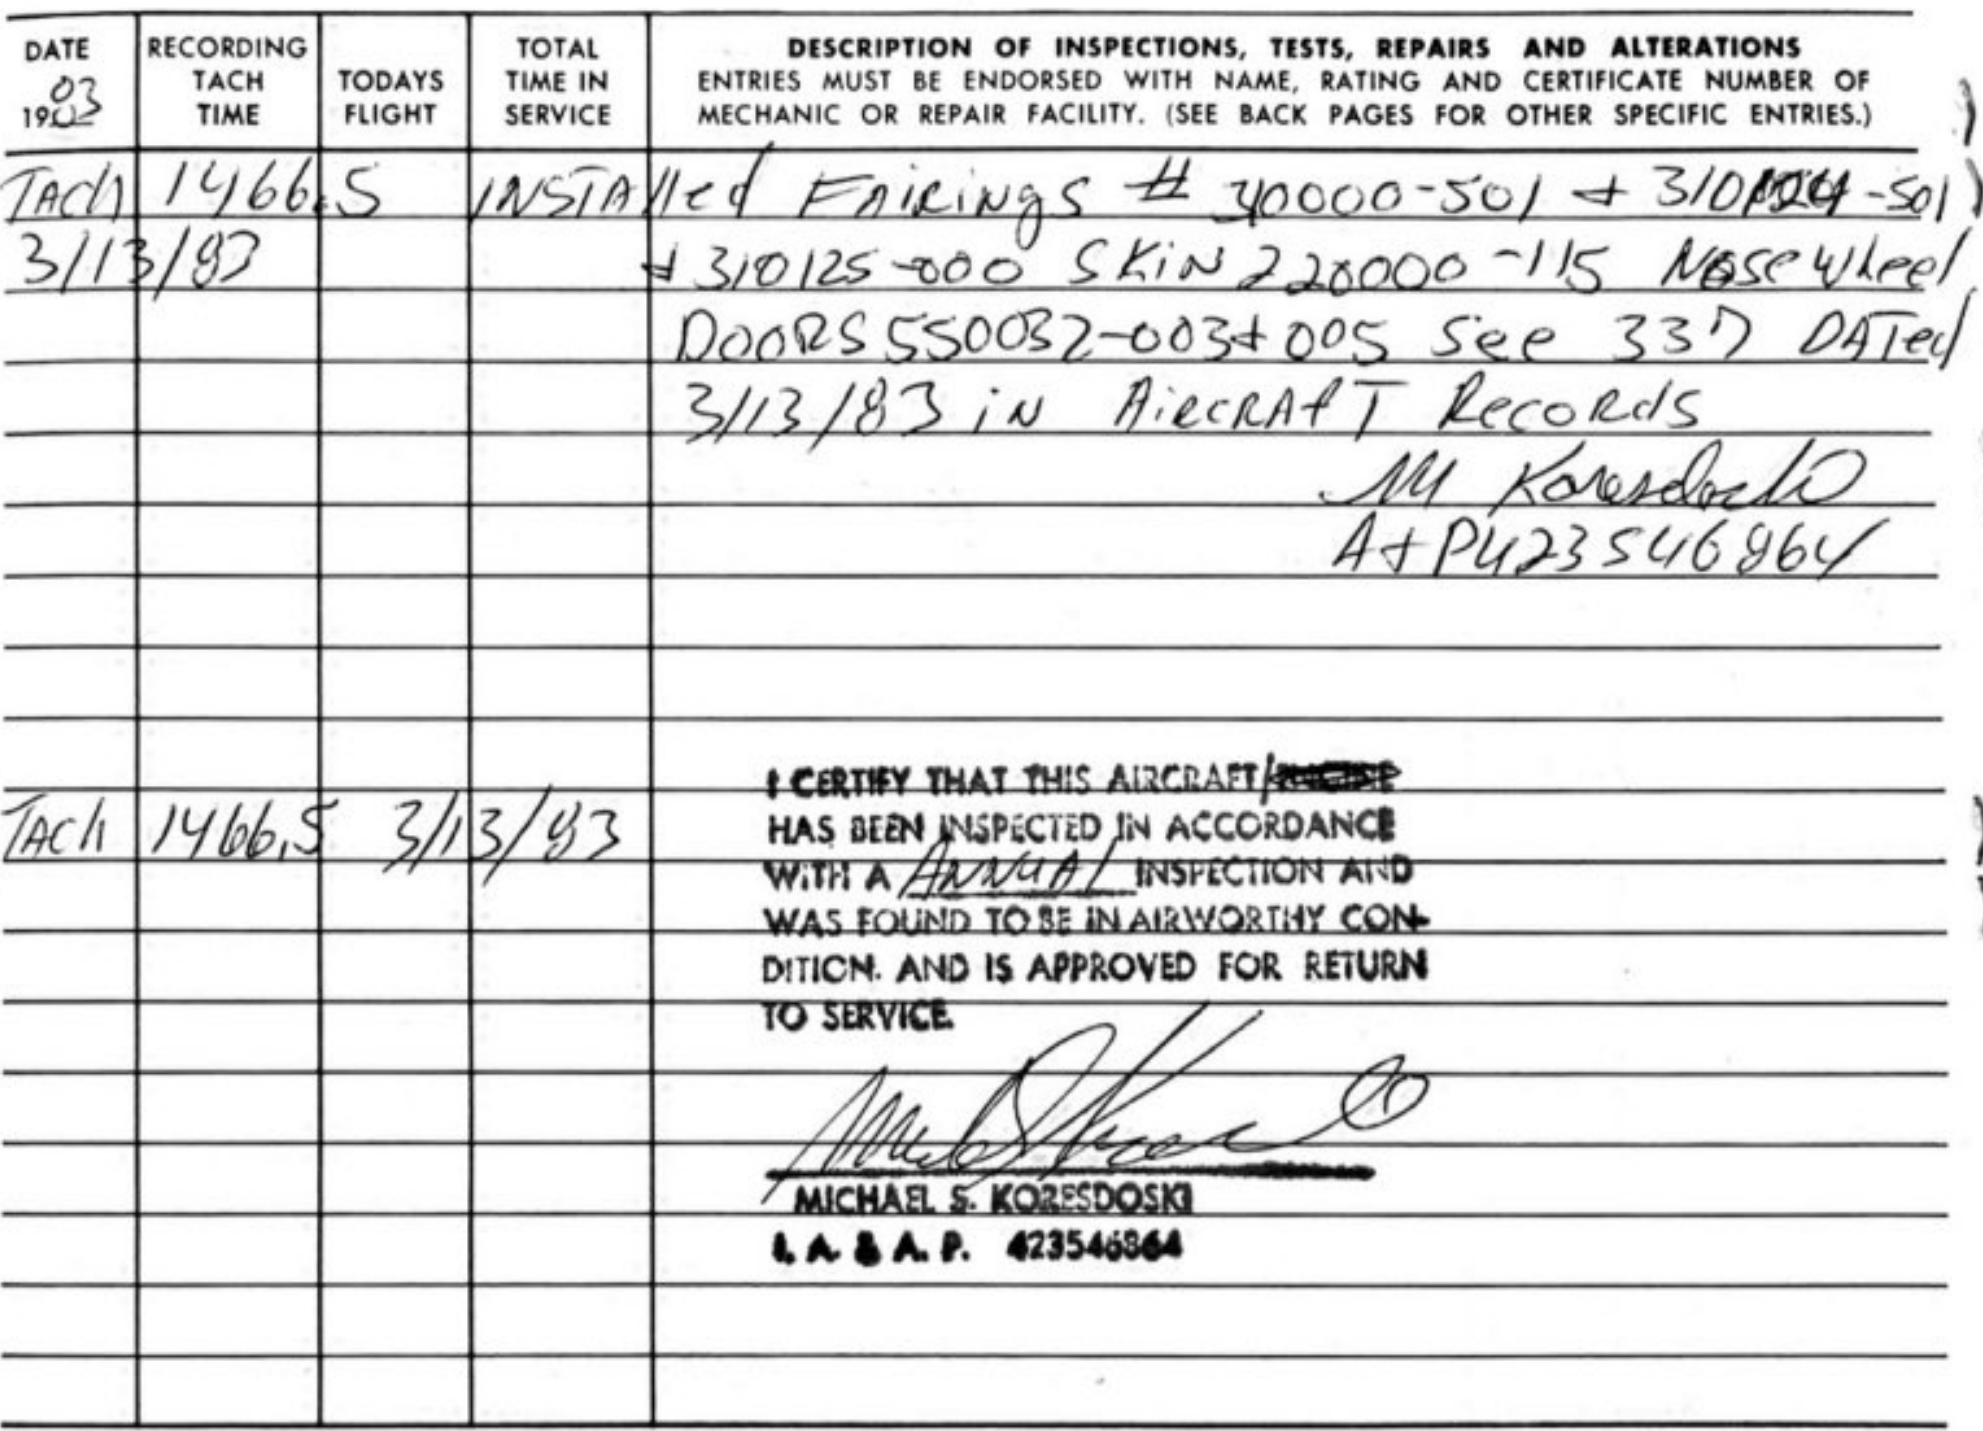 DATE RECORDING TACH TIME TODAYS FLIGHT TOTAL TIME IN SERVICE DESCRIPTION OF INSPECTIONS, TESTS, REPAIRS AND ALTERATIONS
ENTRIES MUST BE ENDORSED WITH NAME, RATING AND CERTIFICATE NUMBER OF
1983 MECHANIC OR REPAIR FACILITY. (SEE BACK PAGES FOR OTHER SPECIFIC ENTRIES.)
TACH 1466.5 INSTAlled FAIRINgS # 30000-501 + -501
3/13/83 + 310125-000 SKIN 220000-115 NOSE wheel
DOORS 550032-003+005 See 337 DATed
3/13/83 iN AIRCRAfT RecoRdS
M Koresdoski
A+P423546864
I CERTIFY THAT THIS AIRCRAFT/
HAS BEEN INSPECTED IN ACCORDANCE
TACH 1466.5 3/13/83
WITH A ANNUAL INSPECTION AND
WAS FOUND TO BE IN AIRWORTHY CON-
DITION. AND IS APPROVED FOR RETURN
TO SERVICE.
MICHAEL S. KORESDOSKI
I. A. & A. P. 423546864